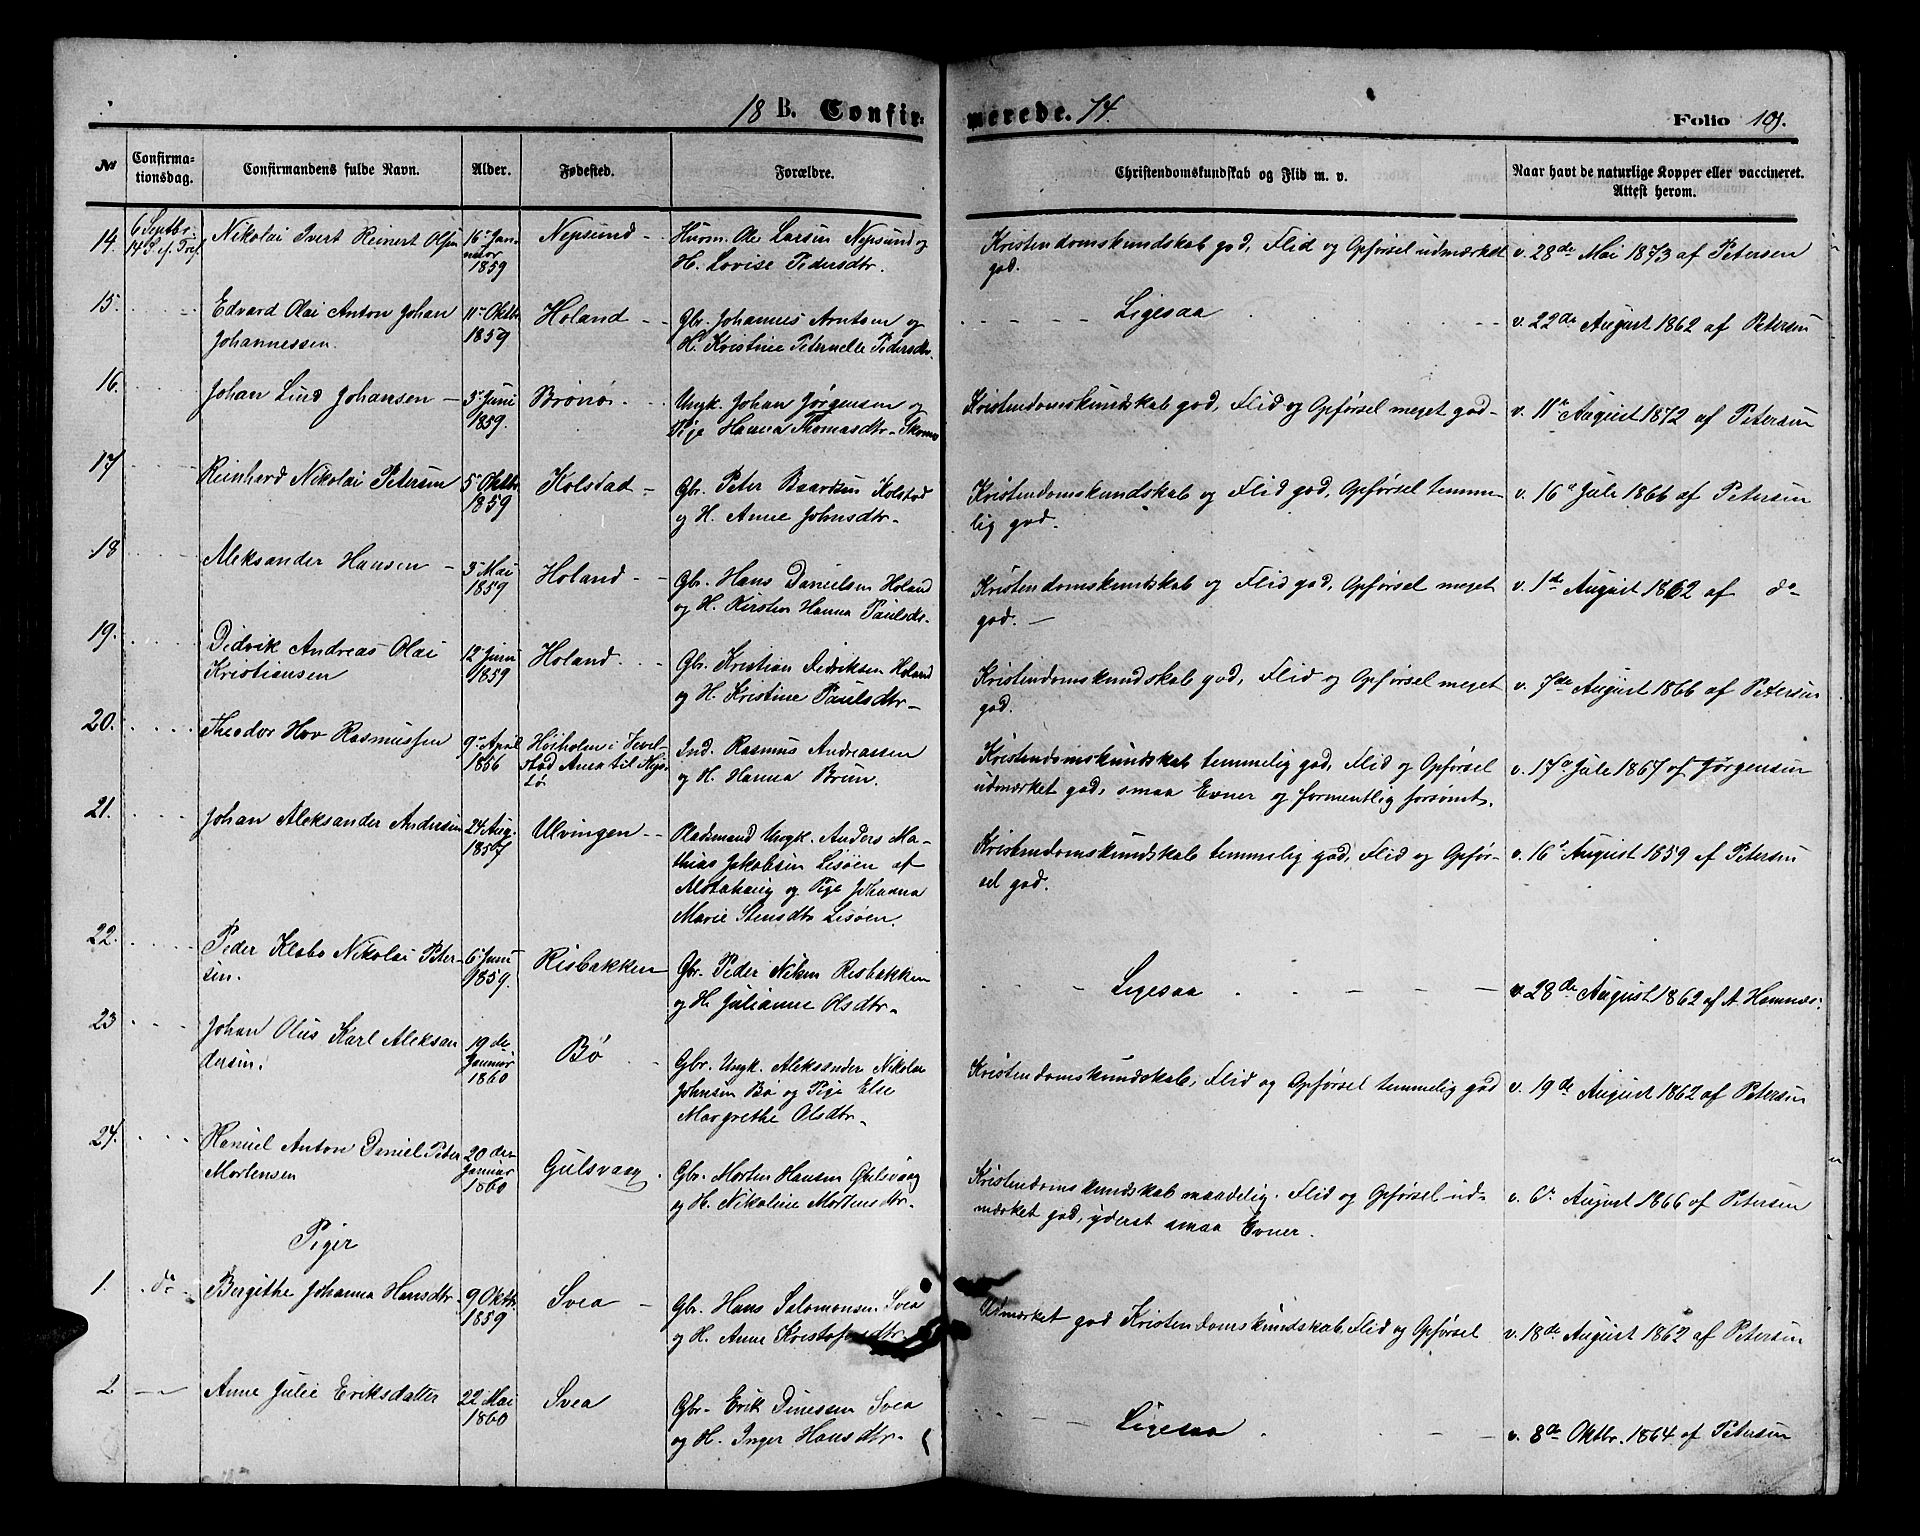 18 B. Confirmerede. 74. Folio 109.
№ Confirmationsdag. Confirmandens fulde Navn. Alder. Fødested. Forældre. Christendomskundskab og Flid m. v. Naar havt de naturlige Kopper eller vaccineret. Attest herom.
14. 6 Septbr. 14 S. ef. Tref. Nikolai Ivert Reinert Olsen 16 Januar 1859 Nepsund Huusm. Ole Larsen Nepsund og H. Lovise Pedersdtr. Kristendomskundskab god, Flid og Opførsel udmærket god. v. 28de Mai 1873 af Petersen
15. Edvard Olai Anton Johan Johannessen. 11 Oktbr 1859 Holand Gbr. Johannes Arntsen og H. Kristine Peternelle Pedersdtr. Ligesaa v. 22de August 1862 af Petersen
16. Johan Lind Johansen 5 Juni 1859. Brønø Ungk. Johan Jørgensen og Pige Hanna Thomasdtr. Kristendomskundskab god, Flid og Opførsel meget god v. 11te August 1872 af Petersen
17 Reinhard Nikolai Petersen 5 Oktbr 1859 Kolstad Gbr. Peter Baardsen Kolstad og H. Anne Johnsdtr. Kristendomskundskab og Flid god, Opførsel temmelig god. v. 16de Juli 1866 af Petersen
18 Aleksander Hansen 3 Mai 1859 Holand Gbr. Hans Danielsen Holand og H. Kirsten Hanna Paulsdr. Kristendomskundskab og Flid god, Opførsel meget god. v. 1de August 1862 af do
19. Didrik Andreas Olai Kristiansen 12 Juni 1859 Holand Gbr. Kristian Didriksen Holand og H. Kristine Paulsdtr Kristendomskundskab god, Flid og Opførsel meget god. v. 7de August 1866 af Petersen
20. Theodor Hov Rasmussen 9 April 1856 Høiholm i Vevelstad Anex til Ind. Rasmus Andreassen og H. Hanna Brun. Kristendomskundskab temmelig god, Flid og Opførsel udmærket god, smaa Evner og formentlig forsømt. v. 17de Juli 1867 af Jørgensen
21. Johan Aleksander Andersen 24 Aug. 1857 Ulvingen Pladsmand Ungk. Anders Mathias Jakobsen Lisøen af Alstahaug og Pige Johanna Marie Stensdtr Lisøen. Kristendomskundskab temmelig god, Flid og Opførsel god. v. 16 August 1859 af Petersen
22. Peder Klebo Nikolai Petersen. 6 Juni 1859. Risbakken Gbr. Peder Nilsen Risbakken og H. Julianne Olsdtr. Ligesaa v. 28de August 1862 af A. Hamnæs:
23 Johan Olus Karl Aleksandersen. 19de Januar 1860 Bø Gbr. Ungk. Aleksander Nikolai Johnsen Bø og Pige Else Margrethe Olsdtr. Kristendomskundskab, Flid og Opførsel temmelig god v. 19de August 1862 af Petersen
24. Hemuel Anton Daniel Peder Mortensen 20de Januar 1860 Gulsvaag Gbr. Morten Hansen Gulsvaag og H. Nikoline Mortensdtr. Kristendomskundskab maadelig. Flid og Opførsel udmærket god, yderst smaa Evner. v. 6 August 1866 af Petersen
Piger
1. do Bergithe Johanna Hansdtr. 9 Oktbr. 1859 Svea Gbr. Hans Salomonsen Svea og H. Anne Kristofersdtr Udmærket god Kristendomskundskab, Flid og Opførsel v. 18de August 1862 af Petersen
2 Anne Julie Eriksdatter 22 Mai 1860 Svea Gbr. Erik Dinessen Svea og H. Inger Hansdtr. Ligesaa v. 8de Oktbr. 1864 af Petersen